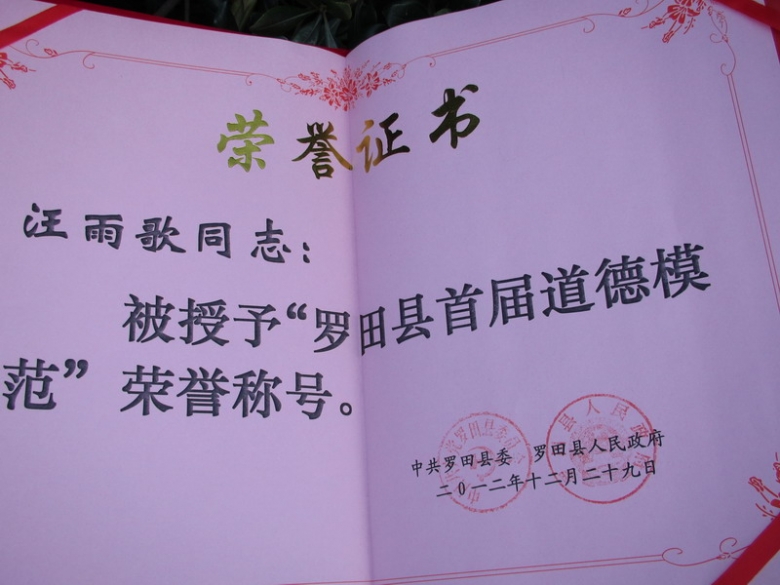 荣誉证书
汪雨歌同志：
被授予“罗田县首届道德模
范”荣誉称号。
中共罗田县委 罗田县人民政府
二０一二年十二月二十九日